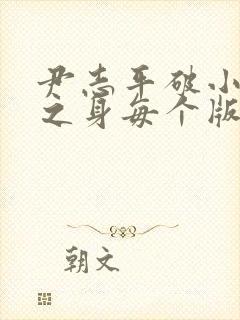 尹志平破小
之身每个版
朝文